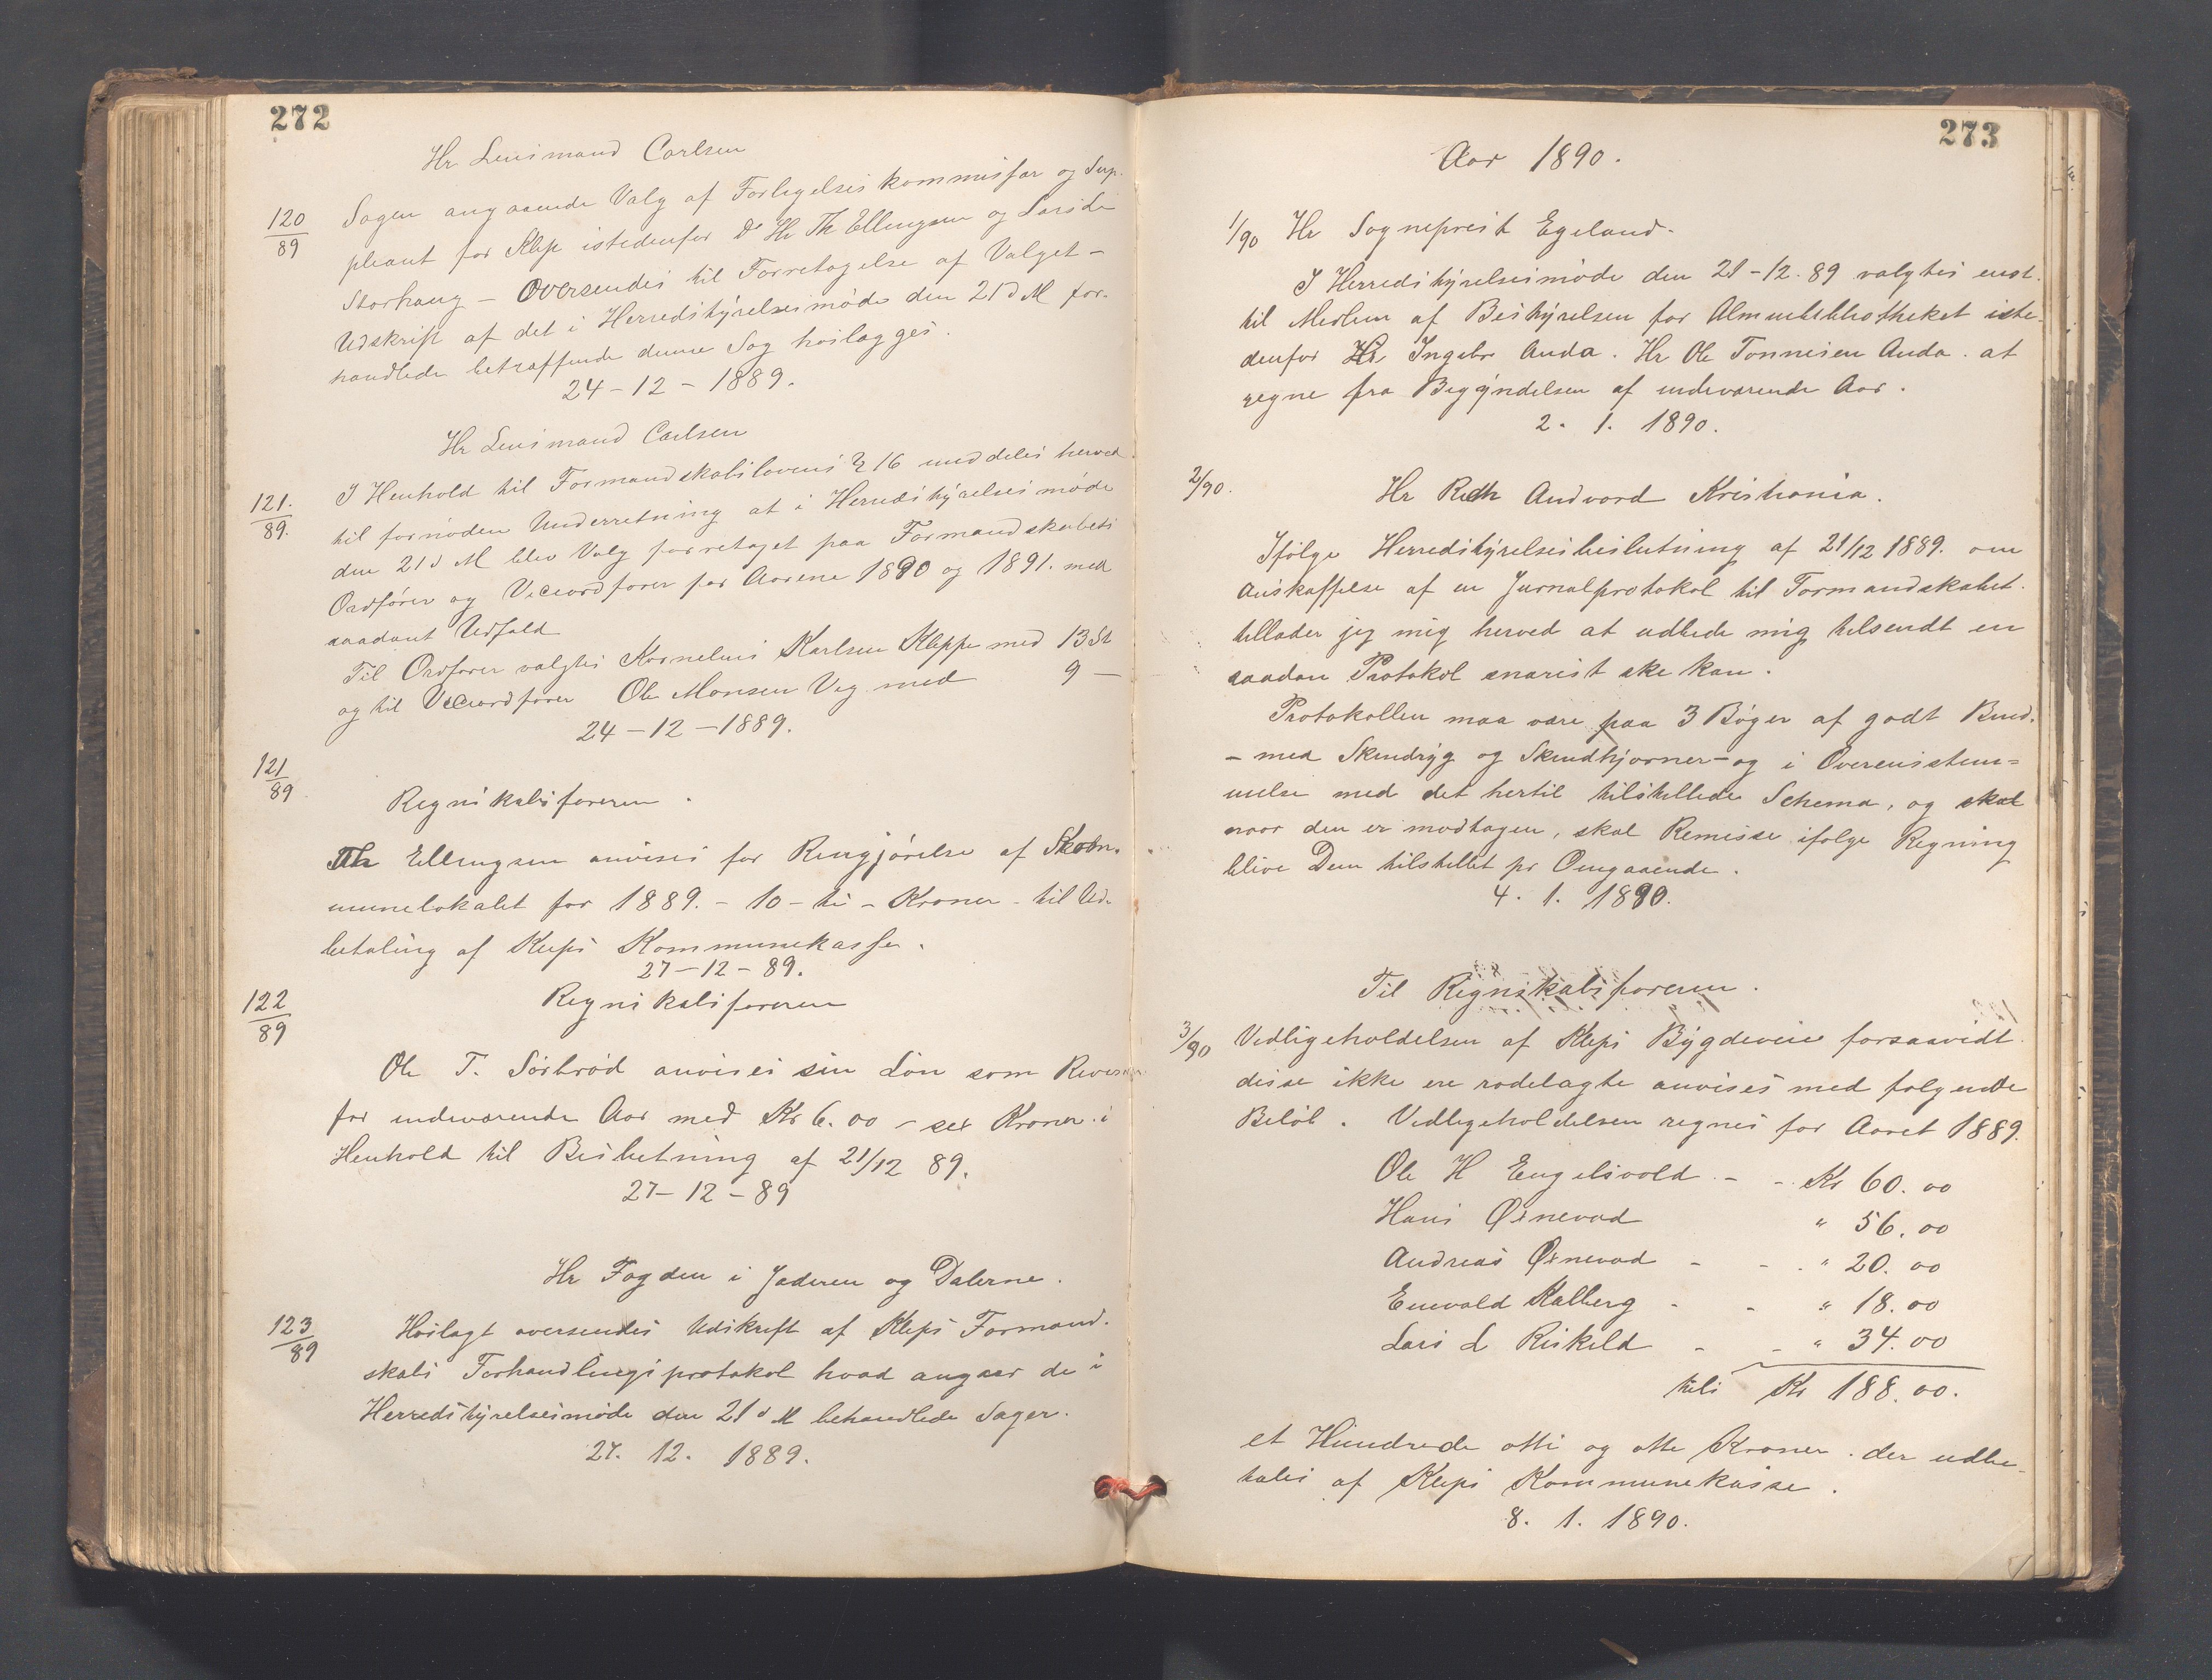 272
Hr Lensmand Carlsen
120/89 Sagen angaaende Valg af Forligelseskommissær og Sup-
pleant for Klep istedenfor Dr Hr Th Ellingsen og Lars L
Storhaug – Oversendes til Foretagelse af Valget –
Udskrift af det i Herredstyrelsesmøde den 21 d M for-
handlede betræffende denne Sag hoslægges.
24 – 12 – 1889.
Hr Lensmand Carlsen
121./89. I Henhold til Formandskabslovens § 16 meddeles herved
til fornøden Underretning at i Herredstyrelsesmøde
den 21 d M blev Valg foretaget paa Formandskabets
Ordfører og Viceordfører for Aarene 1890 og 1891. med
saadant Udfald
Til Ordfører valgtes Kornelius Karlsen Kleppe med 13 St
og til Viceordfører Ole Monsen Veg med 9 –
24 – 12 – 1889.
121/89
Regnskabsføreren.
Th Ellingsen anvises for Rengjørelse af Kom-
munelokalet for 1889. – 10 – ti – Kroner – til Ud-
betaling af Kleps Kommunekasse.
27 – 12 – 89.
122/89 Regnskabsføreren
Ole T. Sörbröd anvises sin Løn som Revisor
for indeværende Aar med Kr 6.00 – sex Kroner i
Henhold til Beslutning af 21/12 89.
27 – 12 – 89
Hr Fogden i Jæderen og Dalerne.
123/89 Hoslagt oversendes Udskrift af Kleps Formand-
skabs Forhandlingsprotokol hvad angaar de i
Herredstyrelsesmøde den 21 d M behandlede Sager.
27. 12. 1889.
273
Aar 1890.
1/90 Hr Sogneprest Egeland.
I Herredstyrelsesmøde den 21 – 12. 89 valgtes enst.
til Medlem af Bestyrelsen for Almuebibliotheket iste-
denfor Hr Ingebr Anda. Hr Ole Tonnesen Anda. at
regne fra Begyndelsen af indeværende Aar.
2. 1. 1890.
2/90. Hr Andvord Kristiania.
Ifølge Herredstyrelsesbeslutning af 21/12 1889. om
Anskaffelse af en Jurnalprotokol til Formandskabet.
tillader jeg mig herved at udbede mig tilsendt en
saadan Protokol snarest ske kan.
Protokollen maa være paa 3 Bøger af godt Bind.
– med Skindryg og Skindhjørner – og i Overensstem=
melse med det hertil tilstillede Schema, og skal
naar den er modtagen, skal Remisse ifølge Regning
blive Dem tilstillet pr Omgaaende.
4. 1. 1890.
Til Regnskabsføreren.
3/90 Vedligeholdelsen af Kleps Bygdeveie forsaavidt
disse ikke ere rodelagte anvises med følgende
Beløb. Vedligeholdelsen regnes for Aaret 1889.
Ole H Engelsvold – – Kr 60.00
Hans Øxnevad " 56.00
Andreas Øxnevad – – " 20.00
Enevald Kalberg – – " 18.00
Lars L Riskild – – " 34.00
tils Kr 188.00.
et Hundrede otti og otte Kroner. der udbe-
tales af Kleps Kommunekasse.
8. 1. 1890.